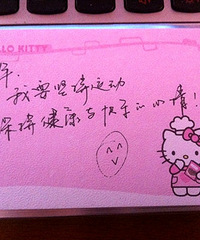 LLO KITTY
年
我要坚持运动
保持健康与快乐的心情!